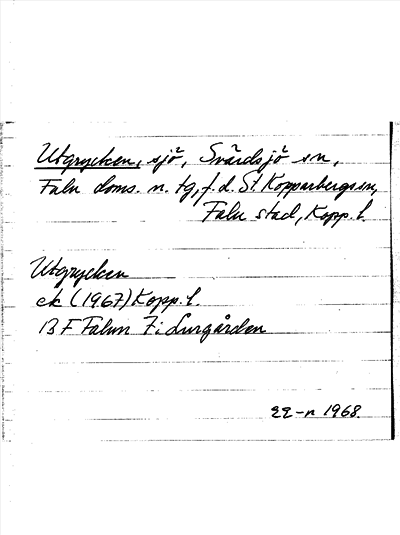 Utgrycken, sjö, Svärdsjö sn,
Falu doms. n. tg, f. d. St. Kopparbergs sn,
Falu stad, Kopp. l.
Utgrycken
ek (1967) Kopp. l.
13 F Falun 7 i Lurgården
EE-n 1968.